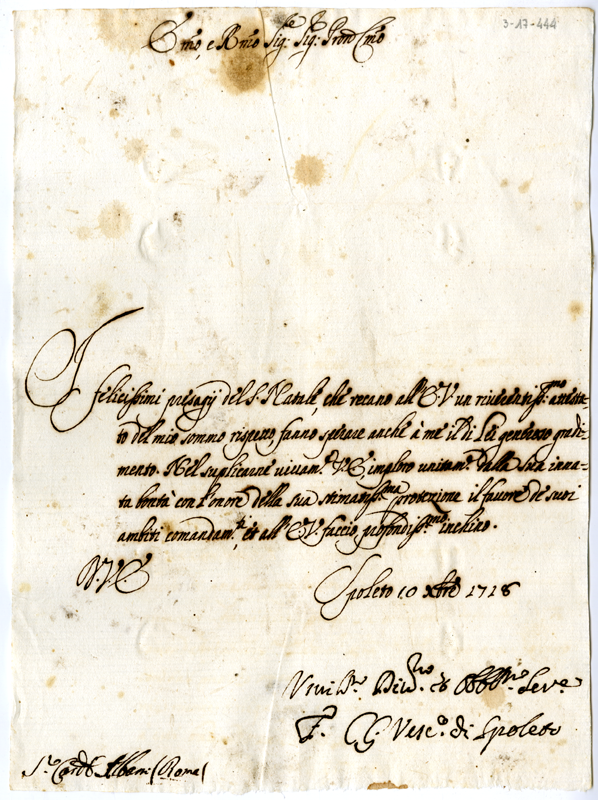 3-17-444
Emo, e Rmo Sig: Sig: Pron Cmo
I felicissimi presagij del S. Natale, che recano all' E V un riuerentiss.mo attesta-
to del mio sommo rispetto, fanno sperare anche à me il di Lei gentilezza gradi-
mento. Nel suplicarne uiuam.te V E imploro unitam.te dalla sua inna-
ta bontà con l'onore della sua stimatiss.ma protezione il fauore de suoi
ambiti comandam.ti, et all' E V. faccio profondiss.mo inchino.
D. V. E
Spoleto 10 Xbre 1718
Vmiliss.mo Diu.mo et Obblig.mo Seru.e
F. C G. Vesc.o di Spoleto
S.r Card.le Albani (Roma)